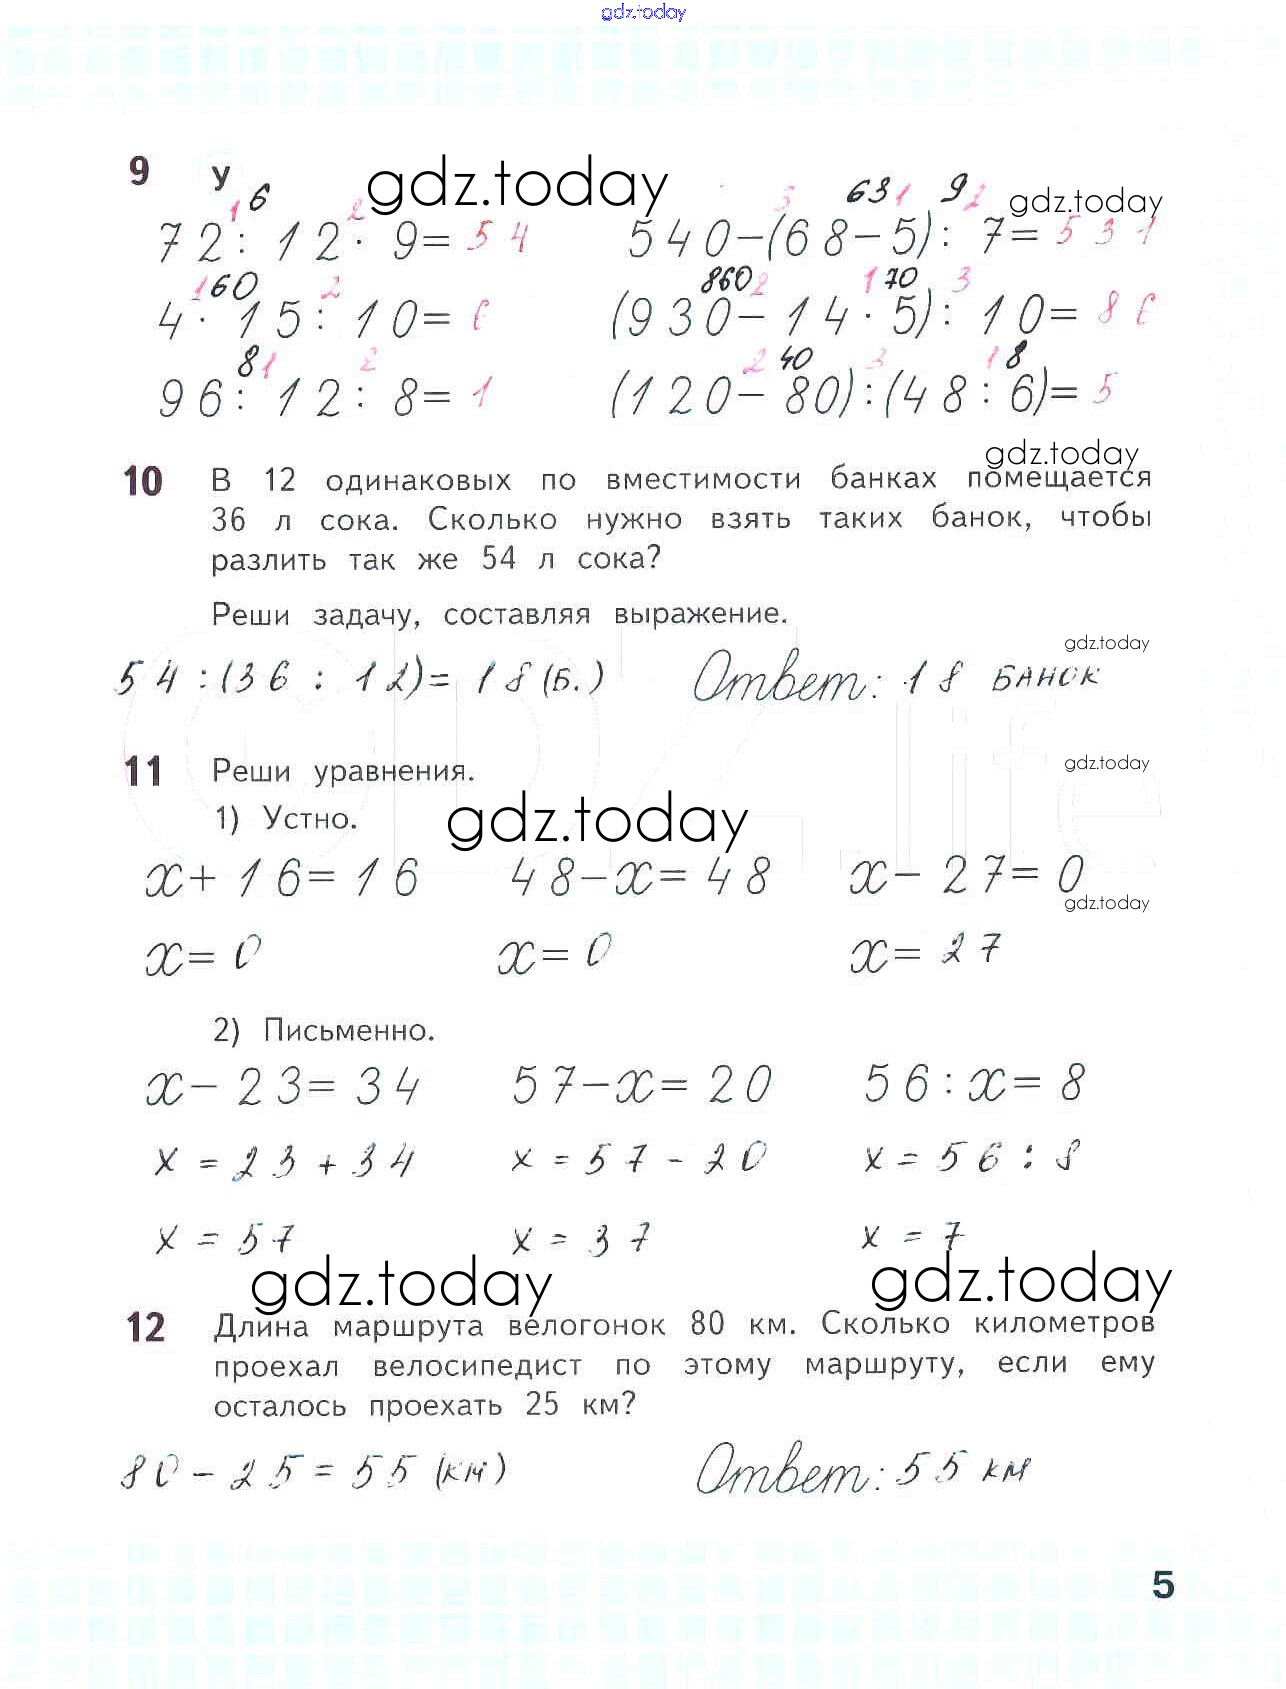 gdz.today
9 У gdz.today
6 63 9 gdz.today
1 2 3 1 2
72:12·9=54 540-(68-5):7=531
160 2 860 2 1 70 3
4·15:10=6 (930-14·5):10=86
8 1 2 2 40 3 1 8
96:12:8=1 (120-80):(48:6)=5
gdz.today
10 В 12 одинаковых по вместимости банках помещается
36 л сока. Сколько нужно взять таких банок, чтобы
разлить так же 54 л сока?
Реши задачу, составляя выражение.
gdz.today
54:(36:12)=18(Б.) Ответ: 18 БАНОК
GDZ.life
11 Реши уравнения. gdz.today
1) Устно. gdz.today
x+16=16 48-x=48 x-27=0
gdz.today
x=0 x=0 x=27
2) Письменно.
x-23=34 57-x=20 56:x=8
x=23+34 x=57-20 x=56:8
x=57 x=37 x=7
gdz.today gdz.today
12 Длина маршрута велогонок 80 км. Сколько километров
проехал велосипедист по этому маршруту, если ему
осталось проехать 25 км?
80-25=55(км) Ответ: 55 км
5